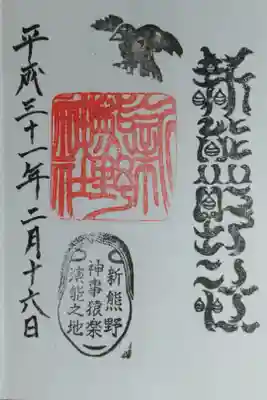 新熊野神社
新熊野神社
新熊野
神事猿楽
演能之地
平成三十一年二月十六日